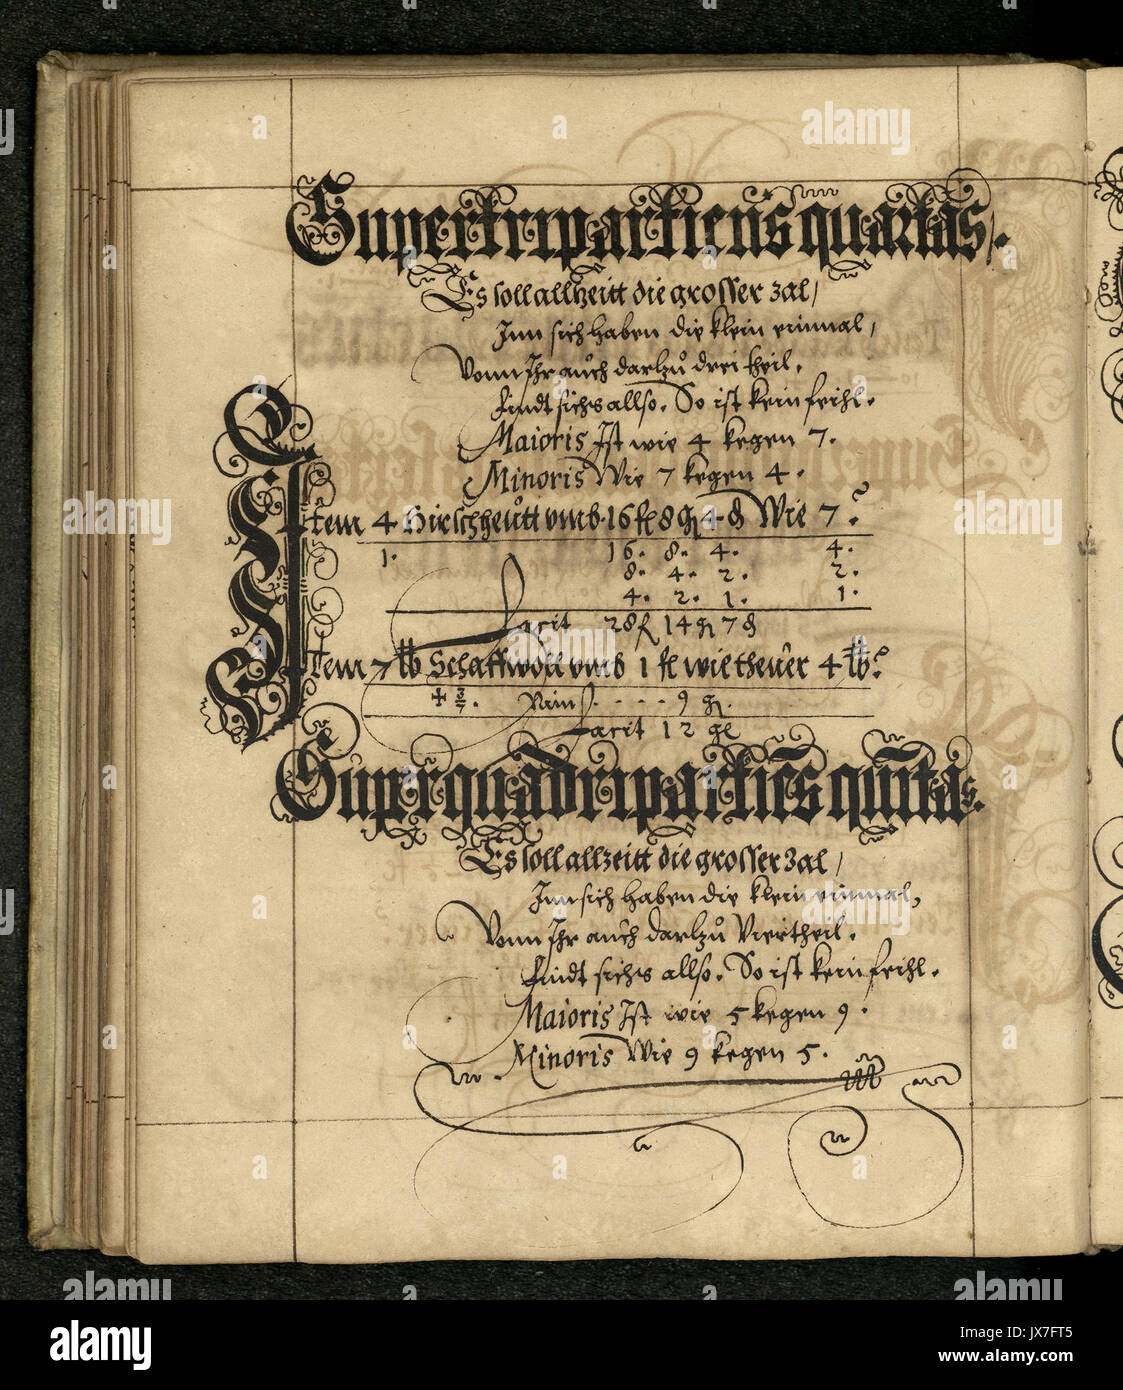 Supertripartiens quartas.
Es soll allzeitt die grosser zal,
Inn sich haben die klein einmal,
Vonn Ihr auch darzů drei theil.
Findt sichs allso. So ist kein feihl.
Maioris Ist wie 4 kegen 7.
Minoris Wie 7 kegen 4.
Item 4 Hirschheutt vmb 16 fl 8 gl 4 d Wie 7?
1. 16. 8. 4. 4.
8. 4. 2. 2.
4. 2. 1. 1.
Facit 28 fl 14 gl 7 d
Item 7 lb Schaffwoll vmb 1 fl wie theuer 4 lb?
÷ 3/7. Nim . - - - 9 gl.
Facit 12 gl
Superquadripartiēs quītas.
Es soll allzeitt die grosser Zal,
Inn sich haben die klein einmal,
Vonn Ihr auch darzů Viertheil.
Findt sichs allso. So ist kein feihl.
Maioris Ist wie 5 kegen 9.
Minoris Wie 9 kegen 5.
alamy
JX7FT5
www.alamy.com